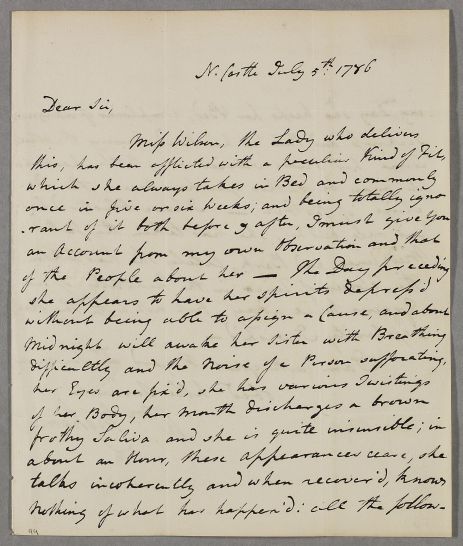 N. Castle July 5th. 1786
Dear Sir,
Miss Wilson, the Lady who delivers
this, has been afflicted with a peculiar Kind of Fit,
which she always takes in Bed and commonly
once in five or six Weeks, and being totally igno
-rant of it both before & after, I must give you
an Account from my own Observation and that
of the People about her — The Day preceding
she appears to have her spirits depress'd
without being able to assign a Cause, and about
Midnight will awake her Sister with Breathing
difficultly and the Noise of a Person suffocating,
her Eyes are fix'd, she has various Twistings
of her Body, her Mouth discharges a brown
frothy Saliva and she is quite insensible; in
about an Hour, these appearances cease, she
talks incoherently and when recover'd, knows
nothing of what has happen'd: all the follow-